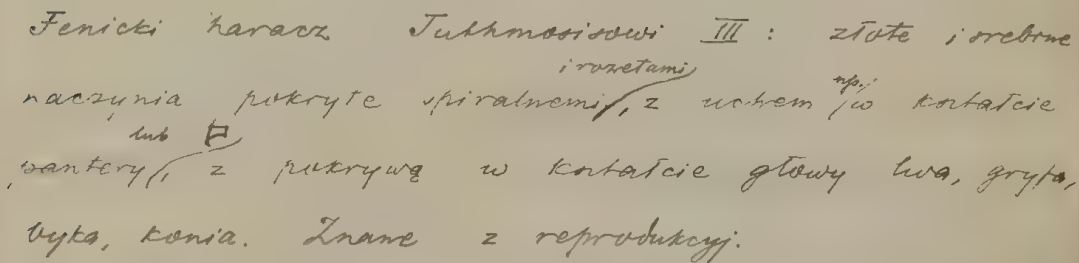 Fenicki haracz Tuthmosisowi III : złote i srebrne
i rozetami
naczynia pokryte spiralnemi, z uchem np. w kształcie
lub
pantery, z pokrywą w kształcie głowy lwa, gryfa,
byka, konia. Znane z reprodukcyj.